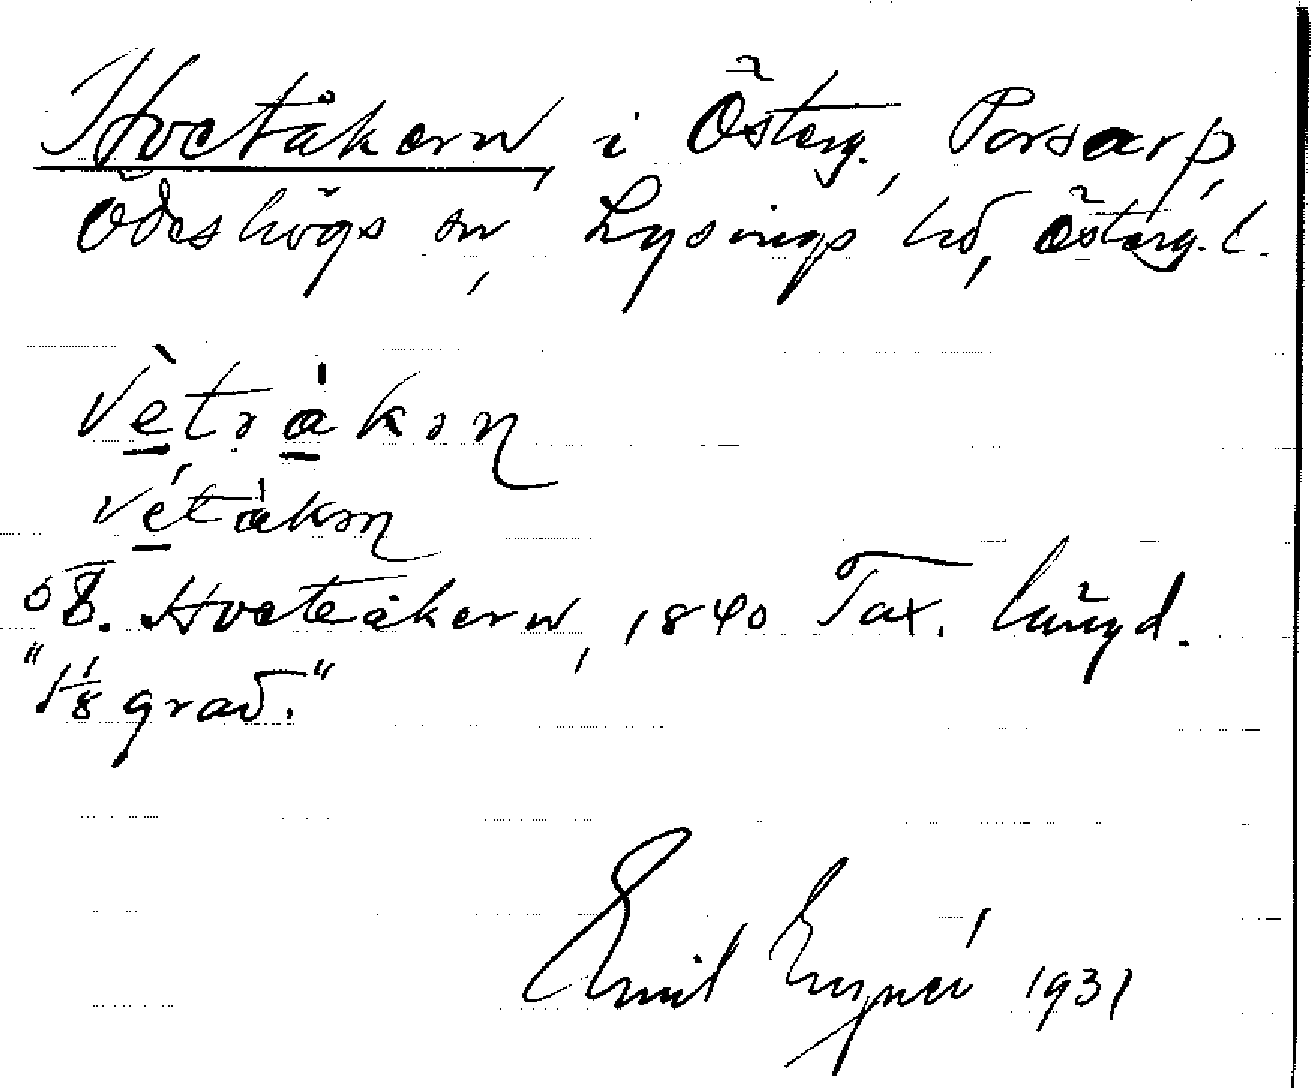 Hvetåkern, i Österg., Porsarp,
Ödeshögs sn, Lysings hd, Österg. l.
vètråkɔn
vétåkɔn
Hveteåkern, 1840 Tax. längd.
"1 1/8 grad."
Emil 1931